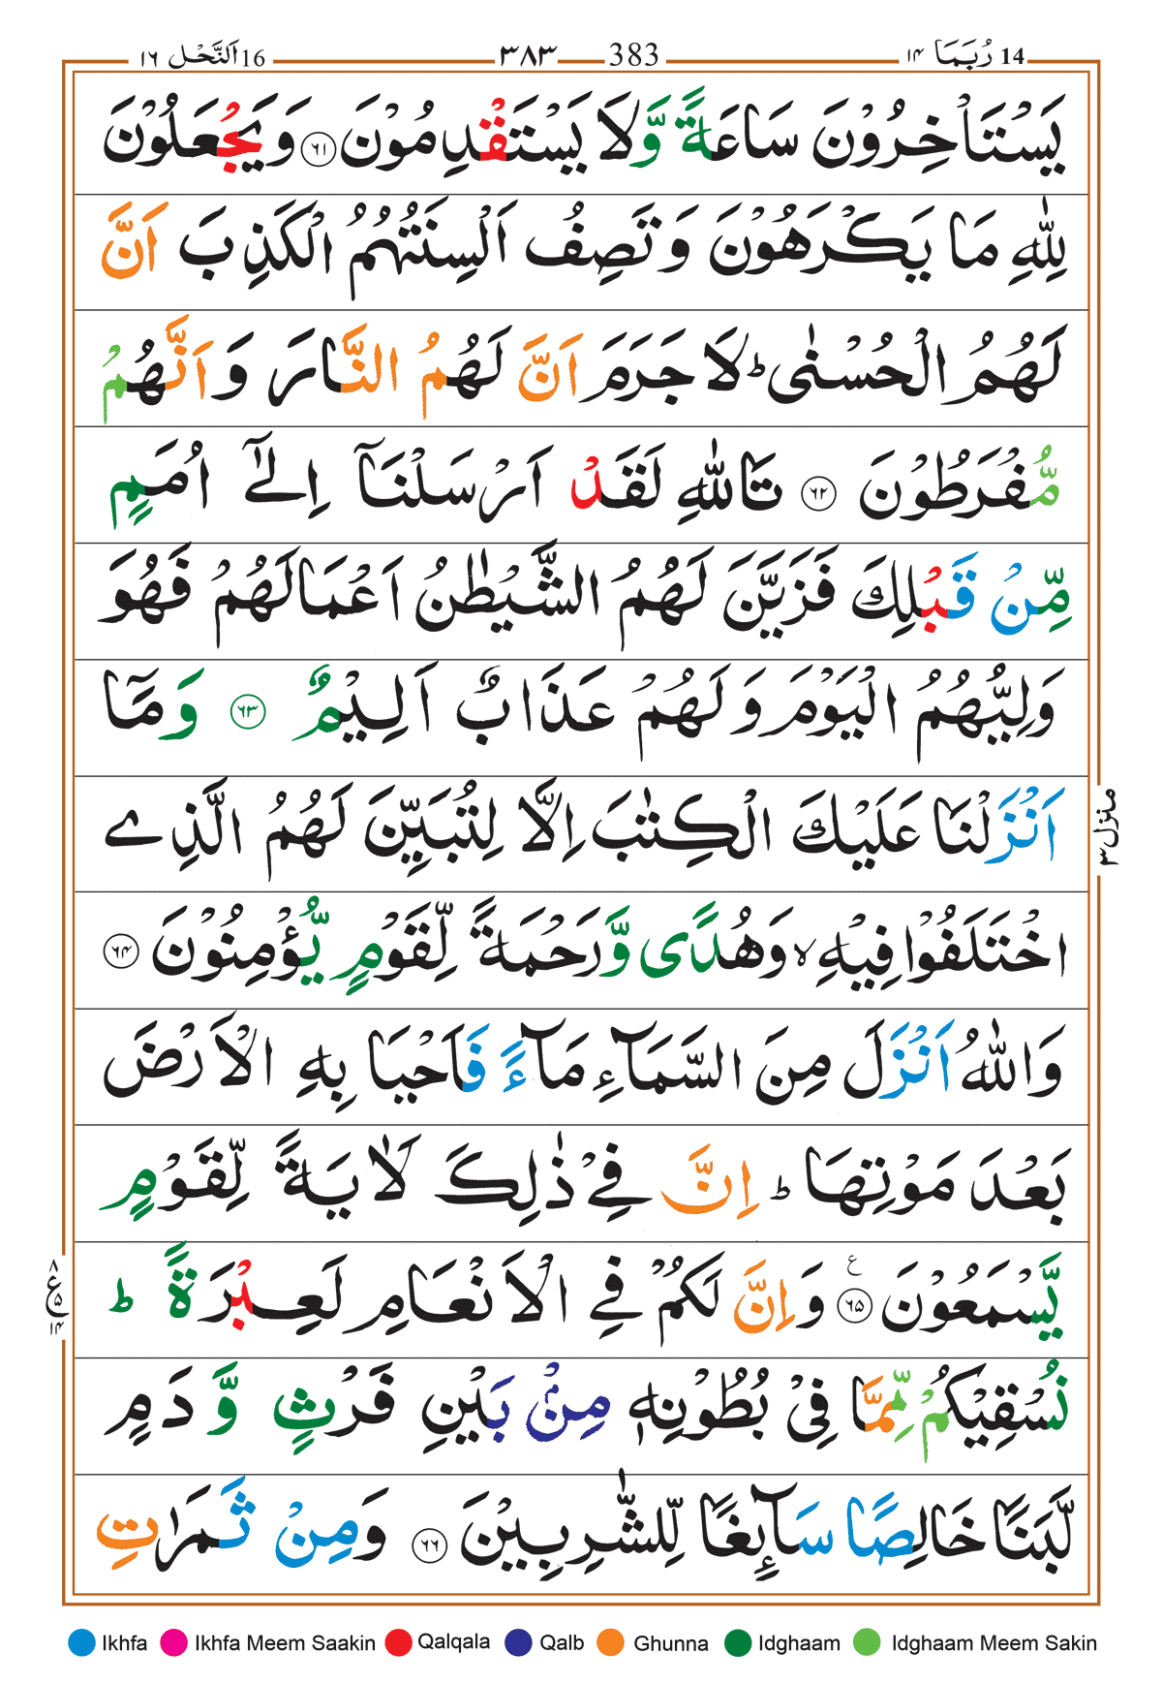 14 رُبَمَا ۱۴
383 — ۳۸۳
16 اَلنَّحْل ۱۶
يَسْتَاْخِرُوْنَ سَاعَةً وَّلَا يَسْتَقْدِمُوْنَ ۶۱ وَيَجْعَلُوْنَ
لِلّٰهِ مَا يَكْرَهُوْنَ وَتَصِفُ اَلْسِنَتُهُمُ الْكَذِبَ اَنَّ
لَهُمُ الْحُسْنٰى ؕ لَا جَرَمَ اَنَّ لَهُمُ النَّارَ وَاَنَّهُمْ
مُّفْرَطُوْنَ ۶۲ تَاللّٰهِ لَقَدْ اَرْسَلْنَاۤ اِلٰۤى اُمَمٍ
مِّنْ قَبْلِكَ فَزَيَّنَ لَهُمُ الشَّيْطٰنُ اَعْمَالَهُمْ فَهُوَ
وَلِيُّهُمُ الْيَوْمَ وَلَهُمْ عَذَابٌ اَلِيْمٌ ۶۳ وَمَاۤ
اَنْزَلْنَا عَلَيْكَ الْكِتٰبَ اِلَّا لِتُبَيِّنَ لَهُمُ الَّذِے
اخْتَلَفُوْا فِيْهِ ۙ وَهُدًى وَّرَحْمَةً لِّقَوْمٍ يُّؤْمِنُوْنَ ۶۴
وَاللّٰهُ اَنْزَلَ مِنَ السَّمَآءِ مَآءً فَاَحْيَا بِهِ الْاَرْضَ
بَعْدَ مَوْتِهَا ؕ اِنَّ فِيْ ذٰلِكَ لَاٰيَةً لِّقَوْمٍ
يَّسْمَعُوْنَ ۶۵ ع وَاِنَّ لَكُمْ فِي الْاَنْعَامِ لَعِبْرَةً ؕ
نُسْقِيْكُمْ مِّمَّا فِيْ بُطُوْنِهٖ مِنْۢ بَيْنِ فَرْثٍ وَّدَمٍ
لَّبَنًا خَالِصًا سَآئِغًا لِّلشّٰرِبِيْنَ ۶۶ وَمِنْ ثَمَرٰتِ
منزل ۳
۸
ع ۵
۱۴
Ikhfa Ikhfa Meem Saakin Qalqala Qalb Ghunna Idghaam Idghaam Meem Sakin